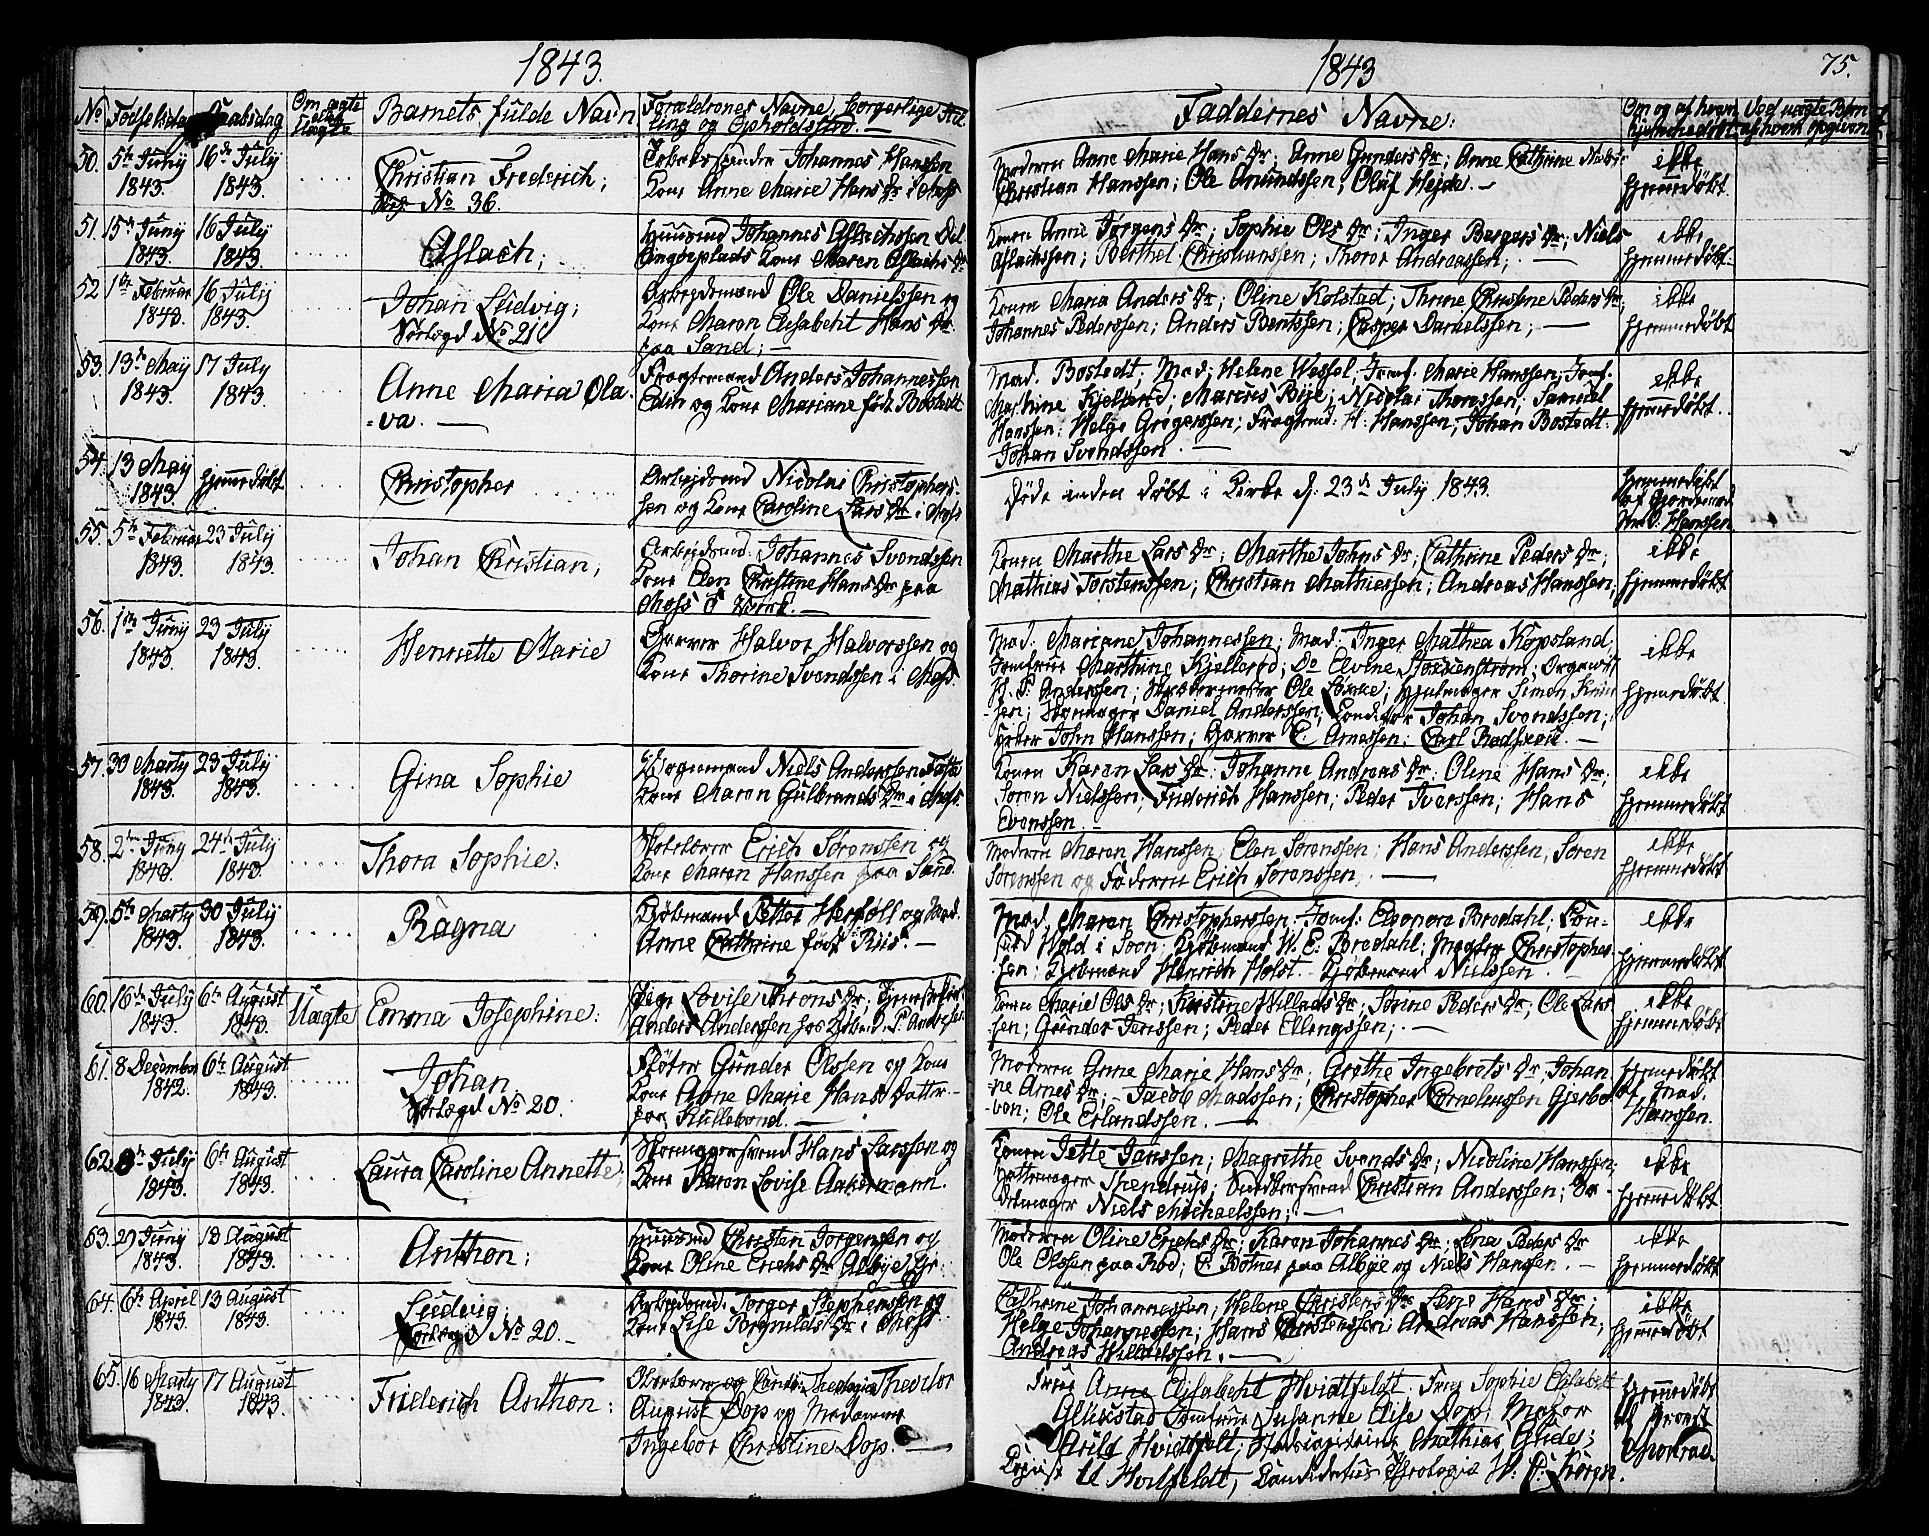 1843.
No Fødselsdag Daabsdag Om ægte eller Uægte Barnets fulde Navn Forældrenes Navne, borgerlige Stilling og Opholdssted.
50. 5te Juny 16de July
1843. 1843.
Christian Frederich;
No 36.
Johannes Hanssen
Kone Anne Marie Hans Dr i Moss
51. 15de Juny 16 July
1843. 1843.
Aslach;
Huusmd Johannes Aslachssen
Kone Maren Aslachs Dr
52 1ste Februar 16 July
1843. 1843.
Johan Ludvig;
Forlægd No 21
Arbeidsmand Ole Danielssen og
Kone Maren Elisabeht Hans Dr
paa Sand;
53. 13de May 17 July
1843. 1843.
Anne Maria Ola
=va.
Fragtemand Anders Johannessen
og Kone Mariane fød Bostedt
54. 13 May hjemmedøbt
1843.
Christopher
Arbeidsmd Nicolai Christophers-
sen og Kone Caroline Lars Dr i Moss
55. 5te Februar 23 July
1843. 1843.
Johan Christian;
Arbeidsmd. Johannes Svendssen
Kone Elen Christine Hans Dr paa
Moss Værk.
56. 1ste Juny 23 July
1843. 1843.
Henriette Marie
Garver Halvor Halvorssen og
Kone Thorine Svendssen i Moss.
57. 30 Marty 23 July
1843. 1843.
Gina Sophie
Vognmand Niels Anderssen
Kone Maren Gulbrands Dr i Moss.
58. 2den Juny 24de July
1843. 1843.
Thora Sophie.
Skolelærer Erich Sørenssen og
Kone Maren Hanssen paa Sand.
59. 5te Marty 30 July
1843. 1843.
Ragna
Kjøbmand Petter Herføll og Mad.
Anne Cathrine født Riis.
60. 16de July 6te August
1843. 1843.
Uægte
Emma Josephine:
Pige Lovise Throns Dr,
Anders Anderssen hos Kjøbmd.
61. 8 December 6te August
1842. 1843.
Johan.
Forlægd No 20.
Gunder Olssen og
Kone Anne Marie Hans Datter
paa Kullebond.
62. 8de July 6te August
1843. 1843.
Laura Caroline Annette;
Skomagersvend Hans Larssen og
Kone Karen Lovise Ankermann.
63. 29 Juny 13 August
1843. 1843.
Anthon;
Huusmd Christen Jørgenssen og
Kone Oline Erichs Dr Albye
64. 6te April 13 August
1843. 1843.
Ludvig;
Forlægd No 20.
Arbeidsmd. Jørger Stephenssen og
Kone Lise Brynilds Dr i Moss.
65. 16 Marty 17 August
1843. 1843.
Friderich Anthon:
Theologiæ Theodor
August Dop og Madamme
Ingebor Christine Dop.
1843
75.
Faddernes Navne:
Om og af hvem hjemmedøbt Ved uægte Børn af hvem opgiven
Moderen Anne Marie Hans Dr; Anne Gunders Dr; Anne Cathrine
Christian Hanssen; Ole Amundssen; Oluf Hejde.
ikke
hjemmedøbt
Konen Anne Jørgens Dr; Sophie Ols Dr; Inger Bergers Dr; Niels
Aslachssen; Berthel Christianssen; Thorer Andreassen;
ikke
hjemmedøbt
Konen Maria Anders Dr; Oline Kolstad; Thrine Christine Peders Dr;
Johannes Pederssen; Anders Bentssen; Casper Danielssen;
ikke
hjemmedøbt
Mad. Bostedt; Mad; Helene Wessel; Jomf. Marie Hanssen; Jomf.
Marthine Kjellerød; Marcus Bye; Nicolai Thoressen; Samuel
Hanssen; Helge Gregerssen; Fragtmd: H: Hanssen; Johan Bostedt.
Johan Svendssen.
ikke
hjemmedøbt
Døde inden døbt i Kirke d: 23de July 1843.
hjemmedøbt
af Gjordemod.
Mad. Hanssen
Konen Marthe Lars Dr; Marthe Johns Dr; Cathrine Peders Dr;
Mathias Torstenssen; Christian Mathiessen; Andreas Hanssen;
ikke
hjemmedøbt
Mad: Mariane Johannessen; Mad: Inger Mathea Kopsland,
Jomfrue Marthine Kjellerød; Do Elvine Organist
H. P. Anderssen; Ole Løkke; Hjulmager Simon
sen; Daniel Anderssen; Conditor Johan Svendssen;
John Hanssen; Garver C. Arnessen; Carl
ikke
hjemmedøbt
Konen Karen Lars Dr; Johanne Andreas Dr; Oline Hans Dr;
Søren Nielssen; Friderich Hanssen; Peder Iverssen; Hans
Evenssen
ikke
hjemmedøbt
Moderen Maren Hanssen; Elen Sørenssen; Hans Anderssen, Søren
Sørenssen og Faderen Erich Sørenssen.
ikke
hjemmedøbt
Mad. Maren Christopherssen; Jomf: Eleonora Brodahl; Con-
sul Wold i Soon; Kjøbmand W. E. Brodahl; Christopher-
sen; Kjøbmand Henrich Holst. Kjøbmand Nielssen.
ikke
hjemmedøbt
Konen Marie Ols Dr; Kirstine Willads Dr; Sørine Peders Dr; Ole Lars-
sen; Gunder Jenssen; Peder Ellingssen;
ikke
hjemmedøbt
Moderen Anne Marie Hans Dr; Grethe Ingebrets Dr; Johan
-ne Arnes Dr; Jacob Madssen; Christopher Cornelius sen
Ole Erlandssen.
hjemmedøbt
af Mad.
Hanssen.
Konen Jette Janssen; Magrethe Svends Dr; Nicoline Hanssen;
Hattemager Thendrup; Christian Anderssen;
Niels Michaelssen;
ikke
hjemmedøbt
Moderen Oline Erichs Dr; Karen Johannes Dr; Lena Peders Dr
Ole Olssen paa Rød; paa Albye og Niels Hanssen.
ikke
hjemmedøbt
Cathrine Johannessen; Helene Christens Dr; Lene Hans Dr;
Helge Johannessen; Hans Christenssen; Andreas Hanssen;
Andreas Willadssen.
ikke
hjemmedøbt
Frue Anne Elisabeht Hvidtfeldt. Frue Sophie Elisabett
Glückstad Jomfrue Susanne Elise Dop; Major
Arild Hvidtfelt; Mathias Gude;
Hvitfeldt; Candidatus Theologiæ H: P: Koren.
hjemmedøbt
af Provst